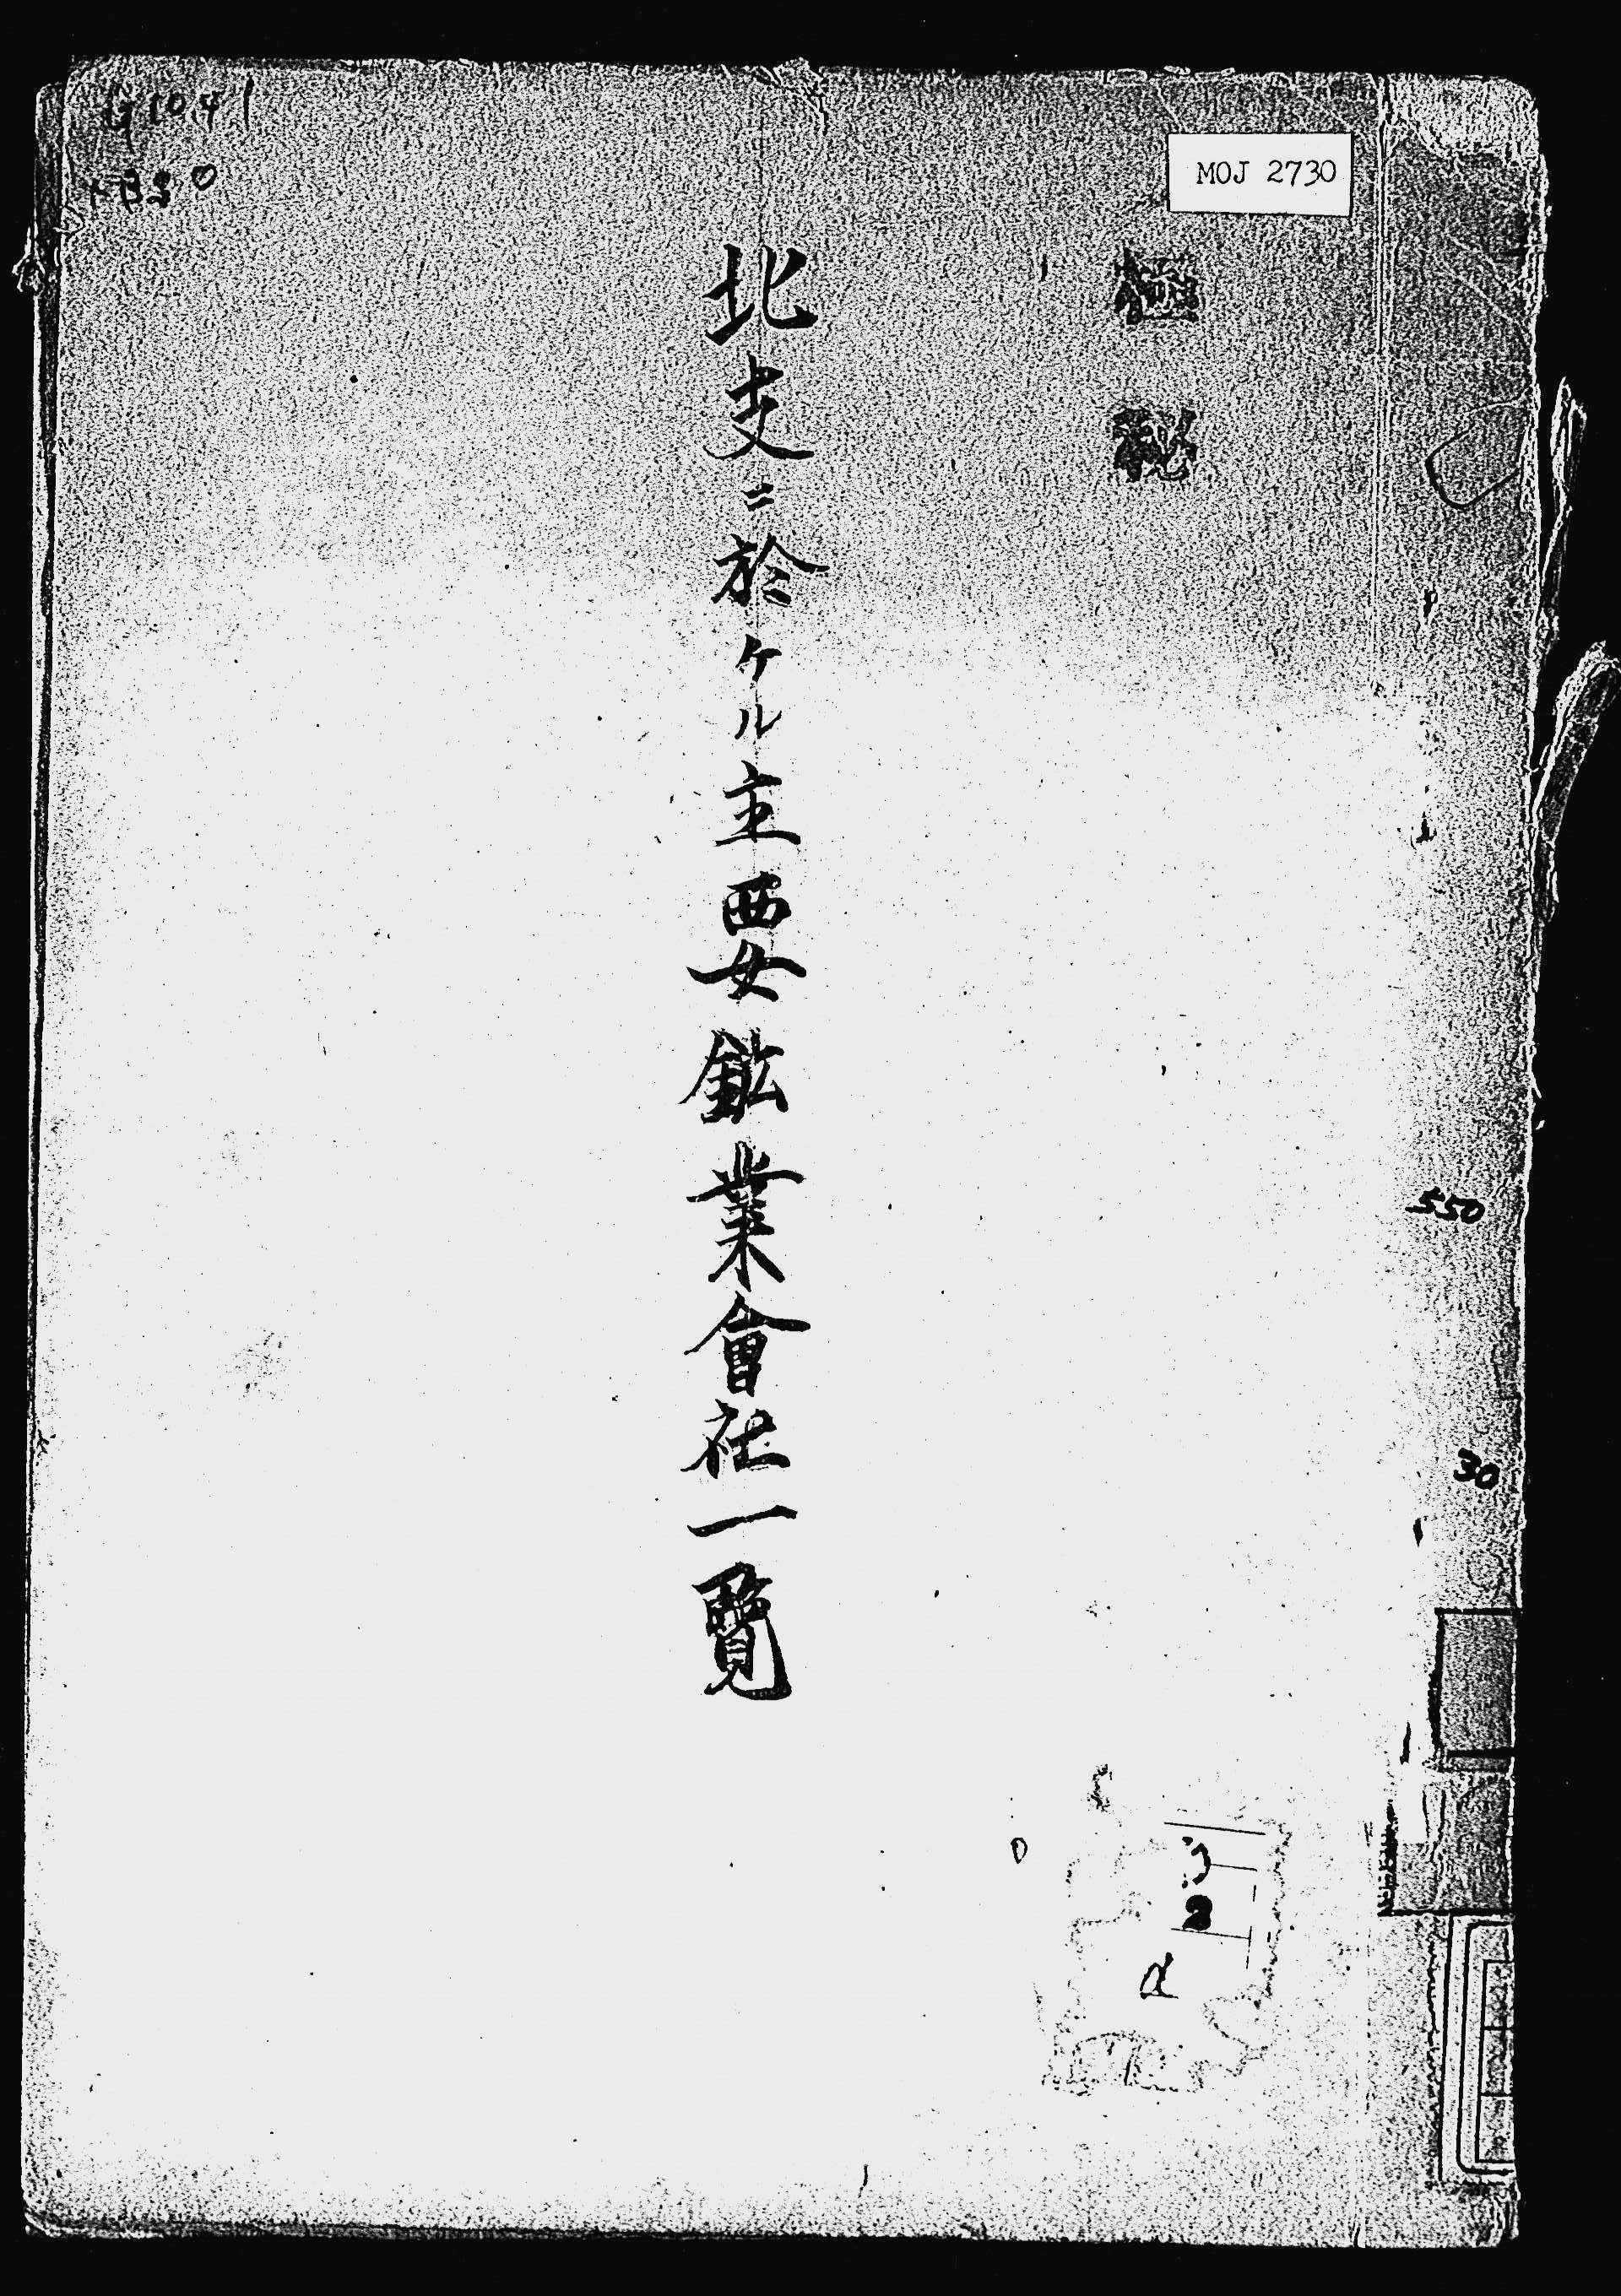 MOJ 2730
極秘
北支ニ於ケル主要鉱業會社一覧
550
30